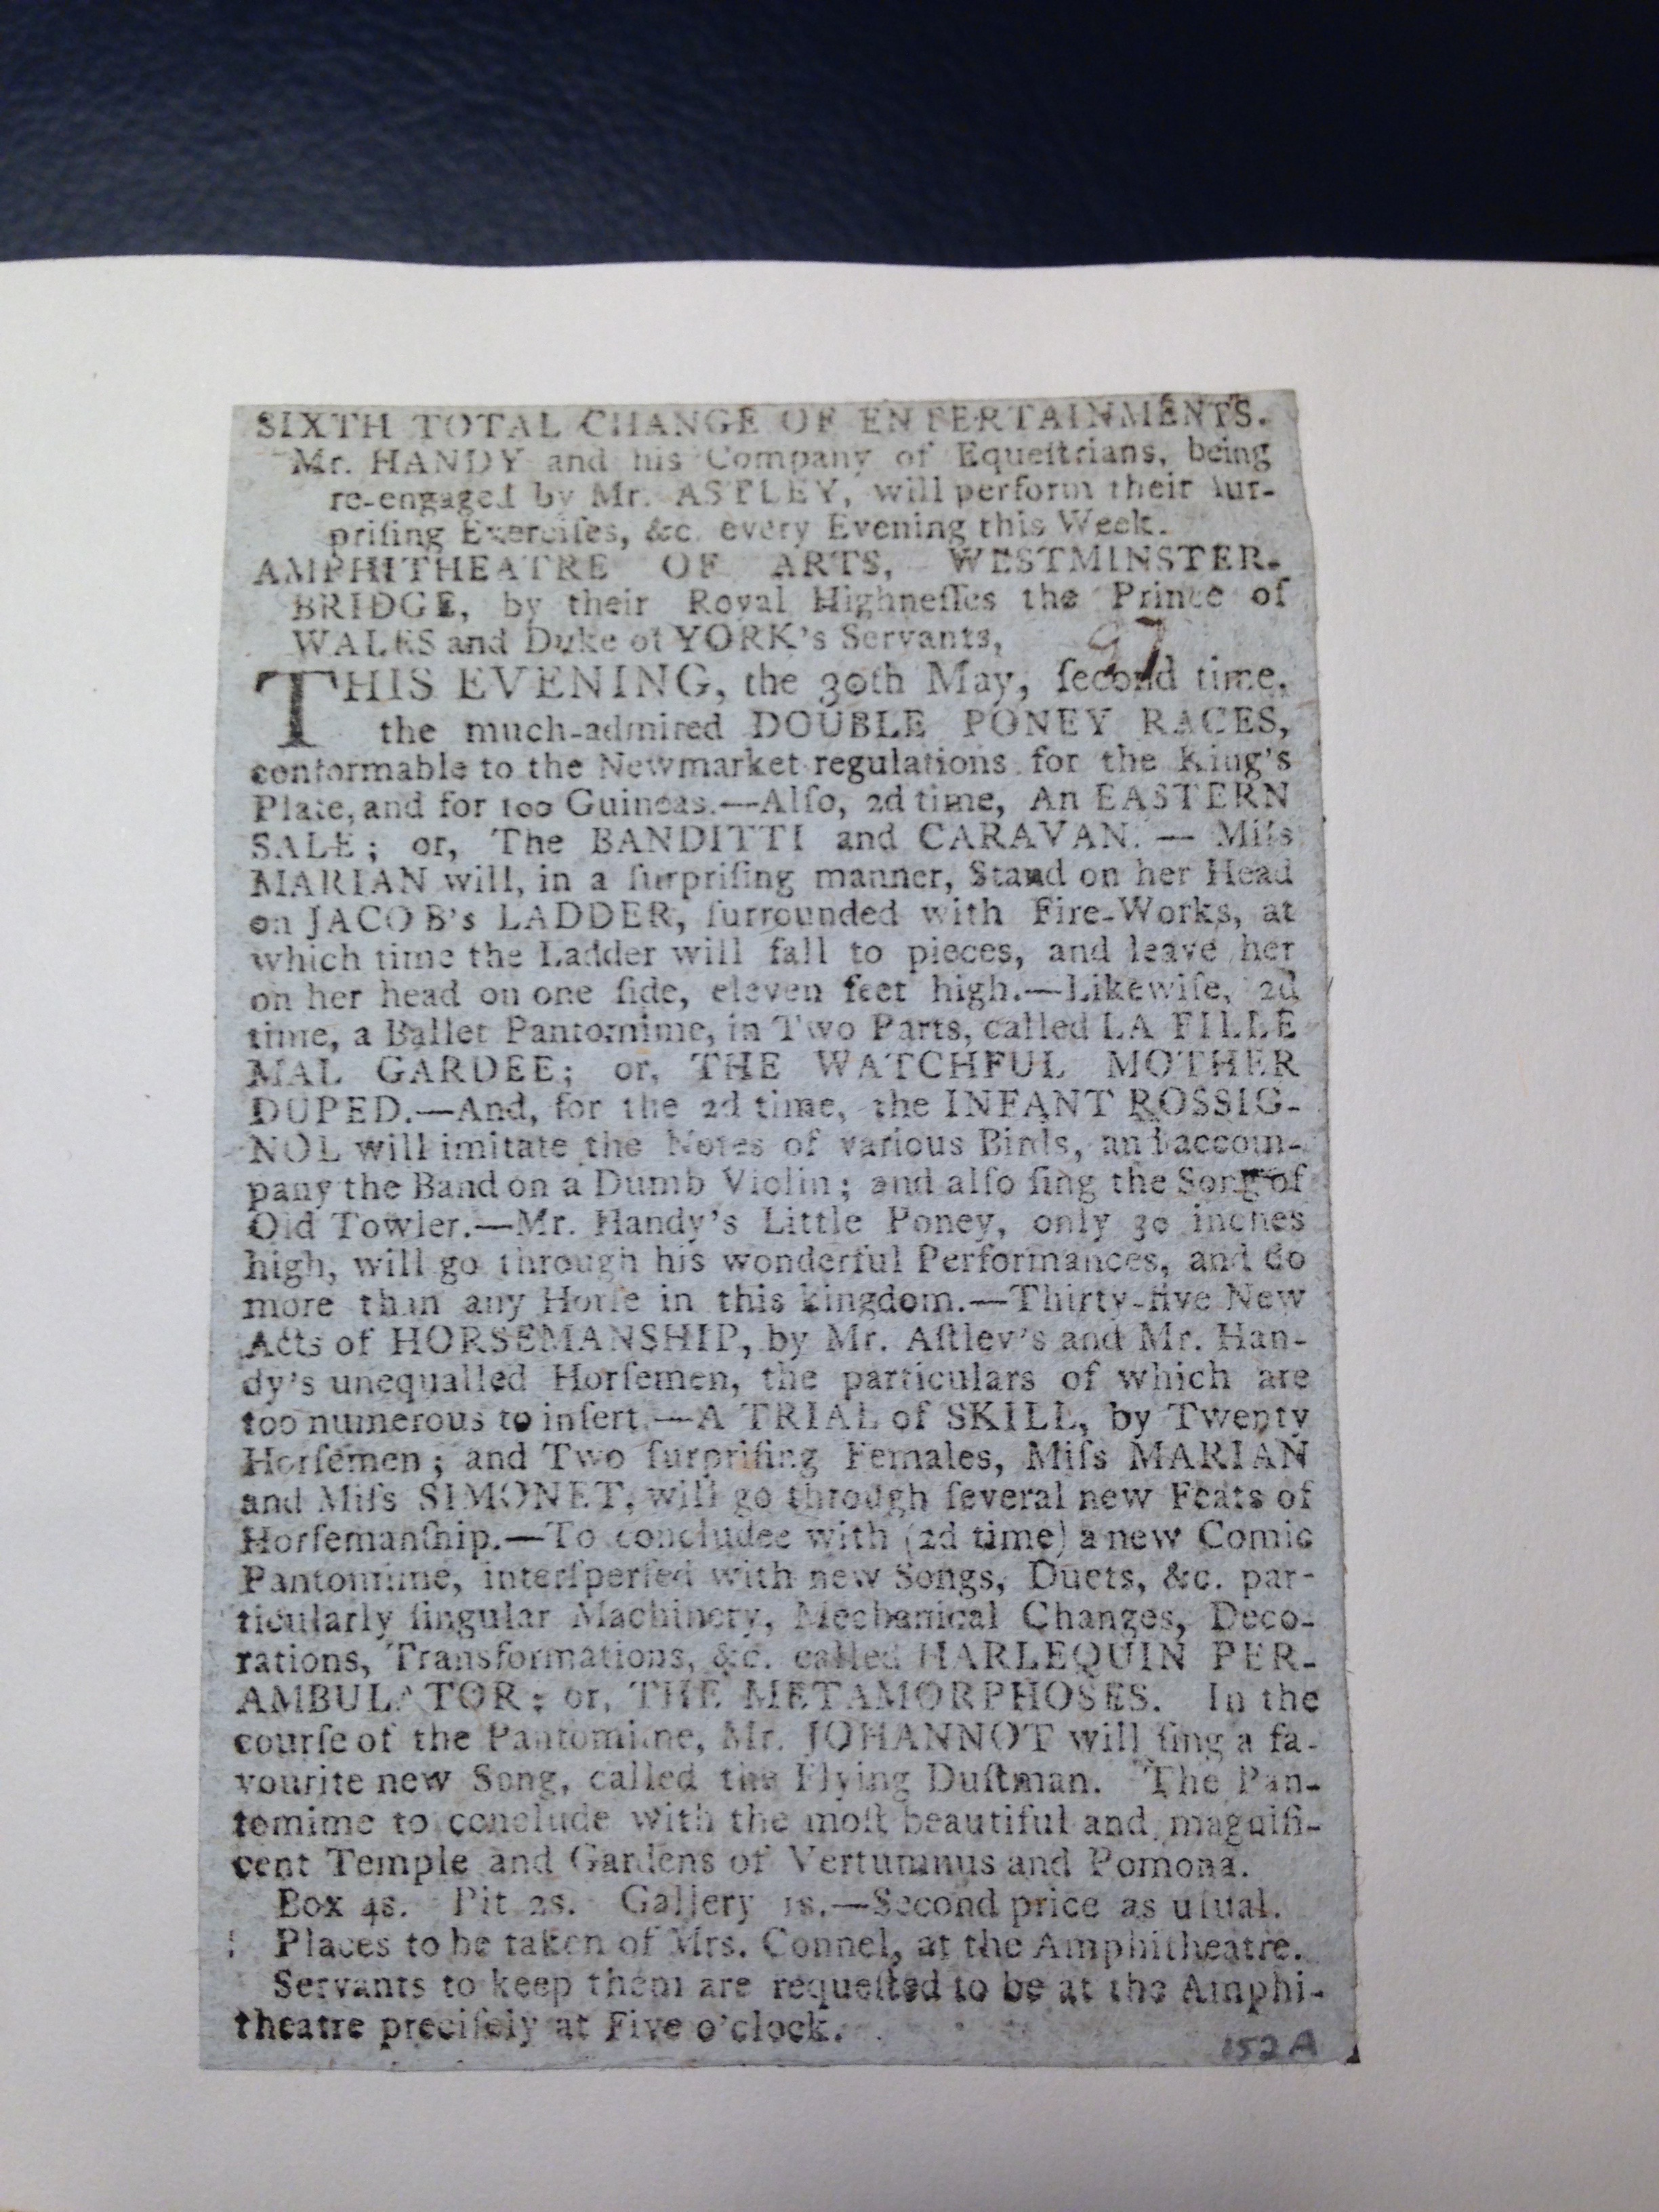 SIXTH TOTAL CHANGE OF ENTERTAINMENTS.
Mr. HANDY and his Company of Equeſtrians, being
re-engaged by Mr. ASTLEY, will perform their ſur-
priſing Exerciſes, &c. every Evening this Week.
AMPHITHEATRE OF ARTS, WESTMINSTER-
BRIDGE, by their Royal Highneſſes the Prince of
WALES and Duke of YORK's Servants,
97
THIS EVENING, the 30th May, ſecond time,
the much-admired DOUBLE PONEY RACES,
conformable to the Newmarket regulations for the King's
Plate, and for 100 Guineas.—Alſo, 2d time, An EASTERN
SALE; or, The BANDITTI and CARAVAN. — Miſs
MARIAN will, in a ſurpriſing manner, Stand on her Head
on JACOB's LADDER, ſurrounded with Fire-Works, at
which time the Ladder will fall to pieces, and leave her
on her head on one ſide, eleven feet high.—Likewiſe, 2d
time, a Ballet Pantomime, in Two Parts, called LA FILLE
MAL GARDEE; or, THE WATCHFUL MOTHER
DUPED.—And, for the 2d time, the INFANT ROSSIG-
NOL will imitate the Notes of various Birds, and accom-
pany the Band on a Dumb Violin; and alſo ſing the Song of
Old Towler.—Mr. Handy's Little Poney, only 30 inches
high, will go through his wonderful Performances, and do
more than any Horſe in this kingdom.—Thirty-five New
Acts of HORSEMANSHIP, by Mr. Aſtley's and Mr. Han-
dy's unequalled Horſemen, the particulars of which are
too numerous to inſert.—A TRIAL of SKILL, by Twenty
Horſemen; and Two ſurpriſing Females, Miſs MARIAN
and Miſs SIMONET, will go through ſeveral new Feats of
Horſemanſhip.—To concludee with (2d time) a new Comic
Pantomime, interſperſed with new Songs, Duets, &c. par-
ticularly ſingular Machinery, Mechanical Changes, Deco-
rations, Transformations, &c. called HARLEQUIN PER-
AMBULATOR; or, THE METAMORPHOSES. In the
courſe of the Pantomime, Mr. JOHANNOT will ſing a fa-
vourite new Song, called the Flying Duſtman. The Pan-
tomime to conclude with the moſt beautiful and magnifi-
cent Temple and Gardens of Vertumnus and Pomona.
Box 4s. Pit 2s. Gallery 1s.—Second price as uſual.
Places to be taken of Mrs. Connel, at the Amphitheatre.
Servants to keep them are requeſted to be at the Amphi-
theatre preciſely at Five o'clock.
152A